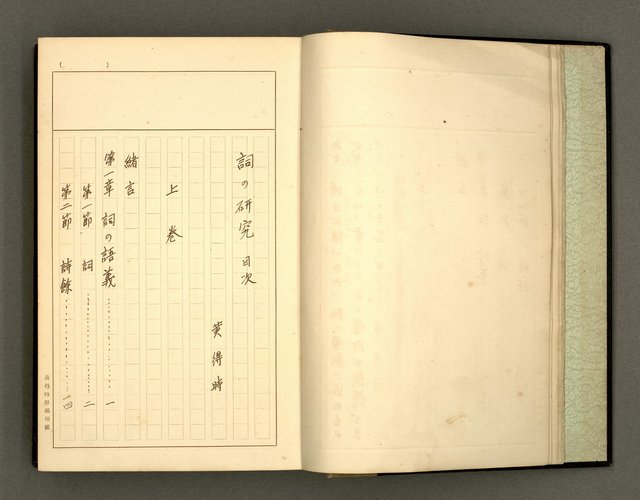 詞の研究 目次
黄得時
上卷
緒言
第一章 詞の語義……………一
第一節 詞……………二
第二節 詩餘……………一四
黄得時原稿用紙